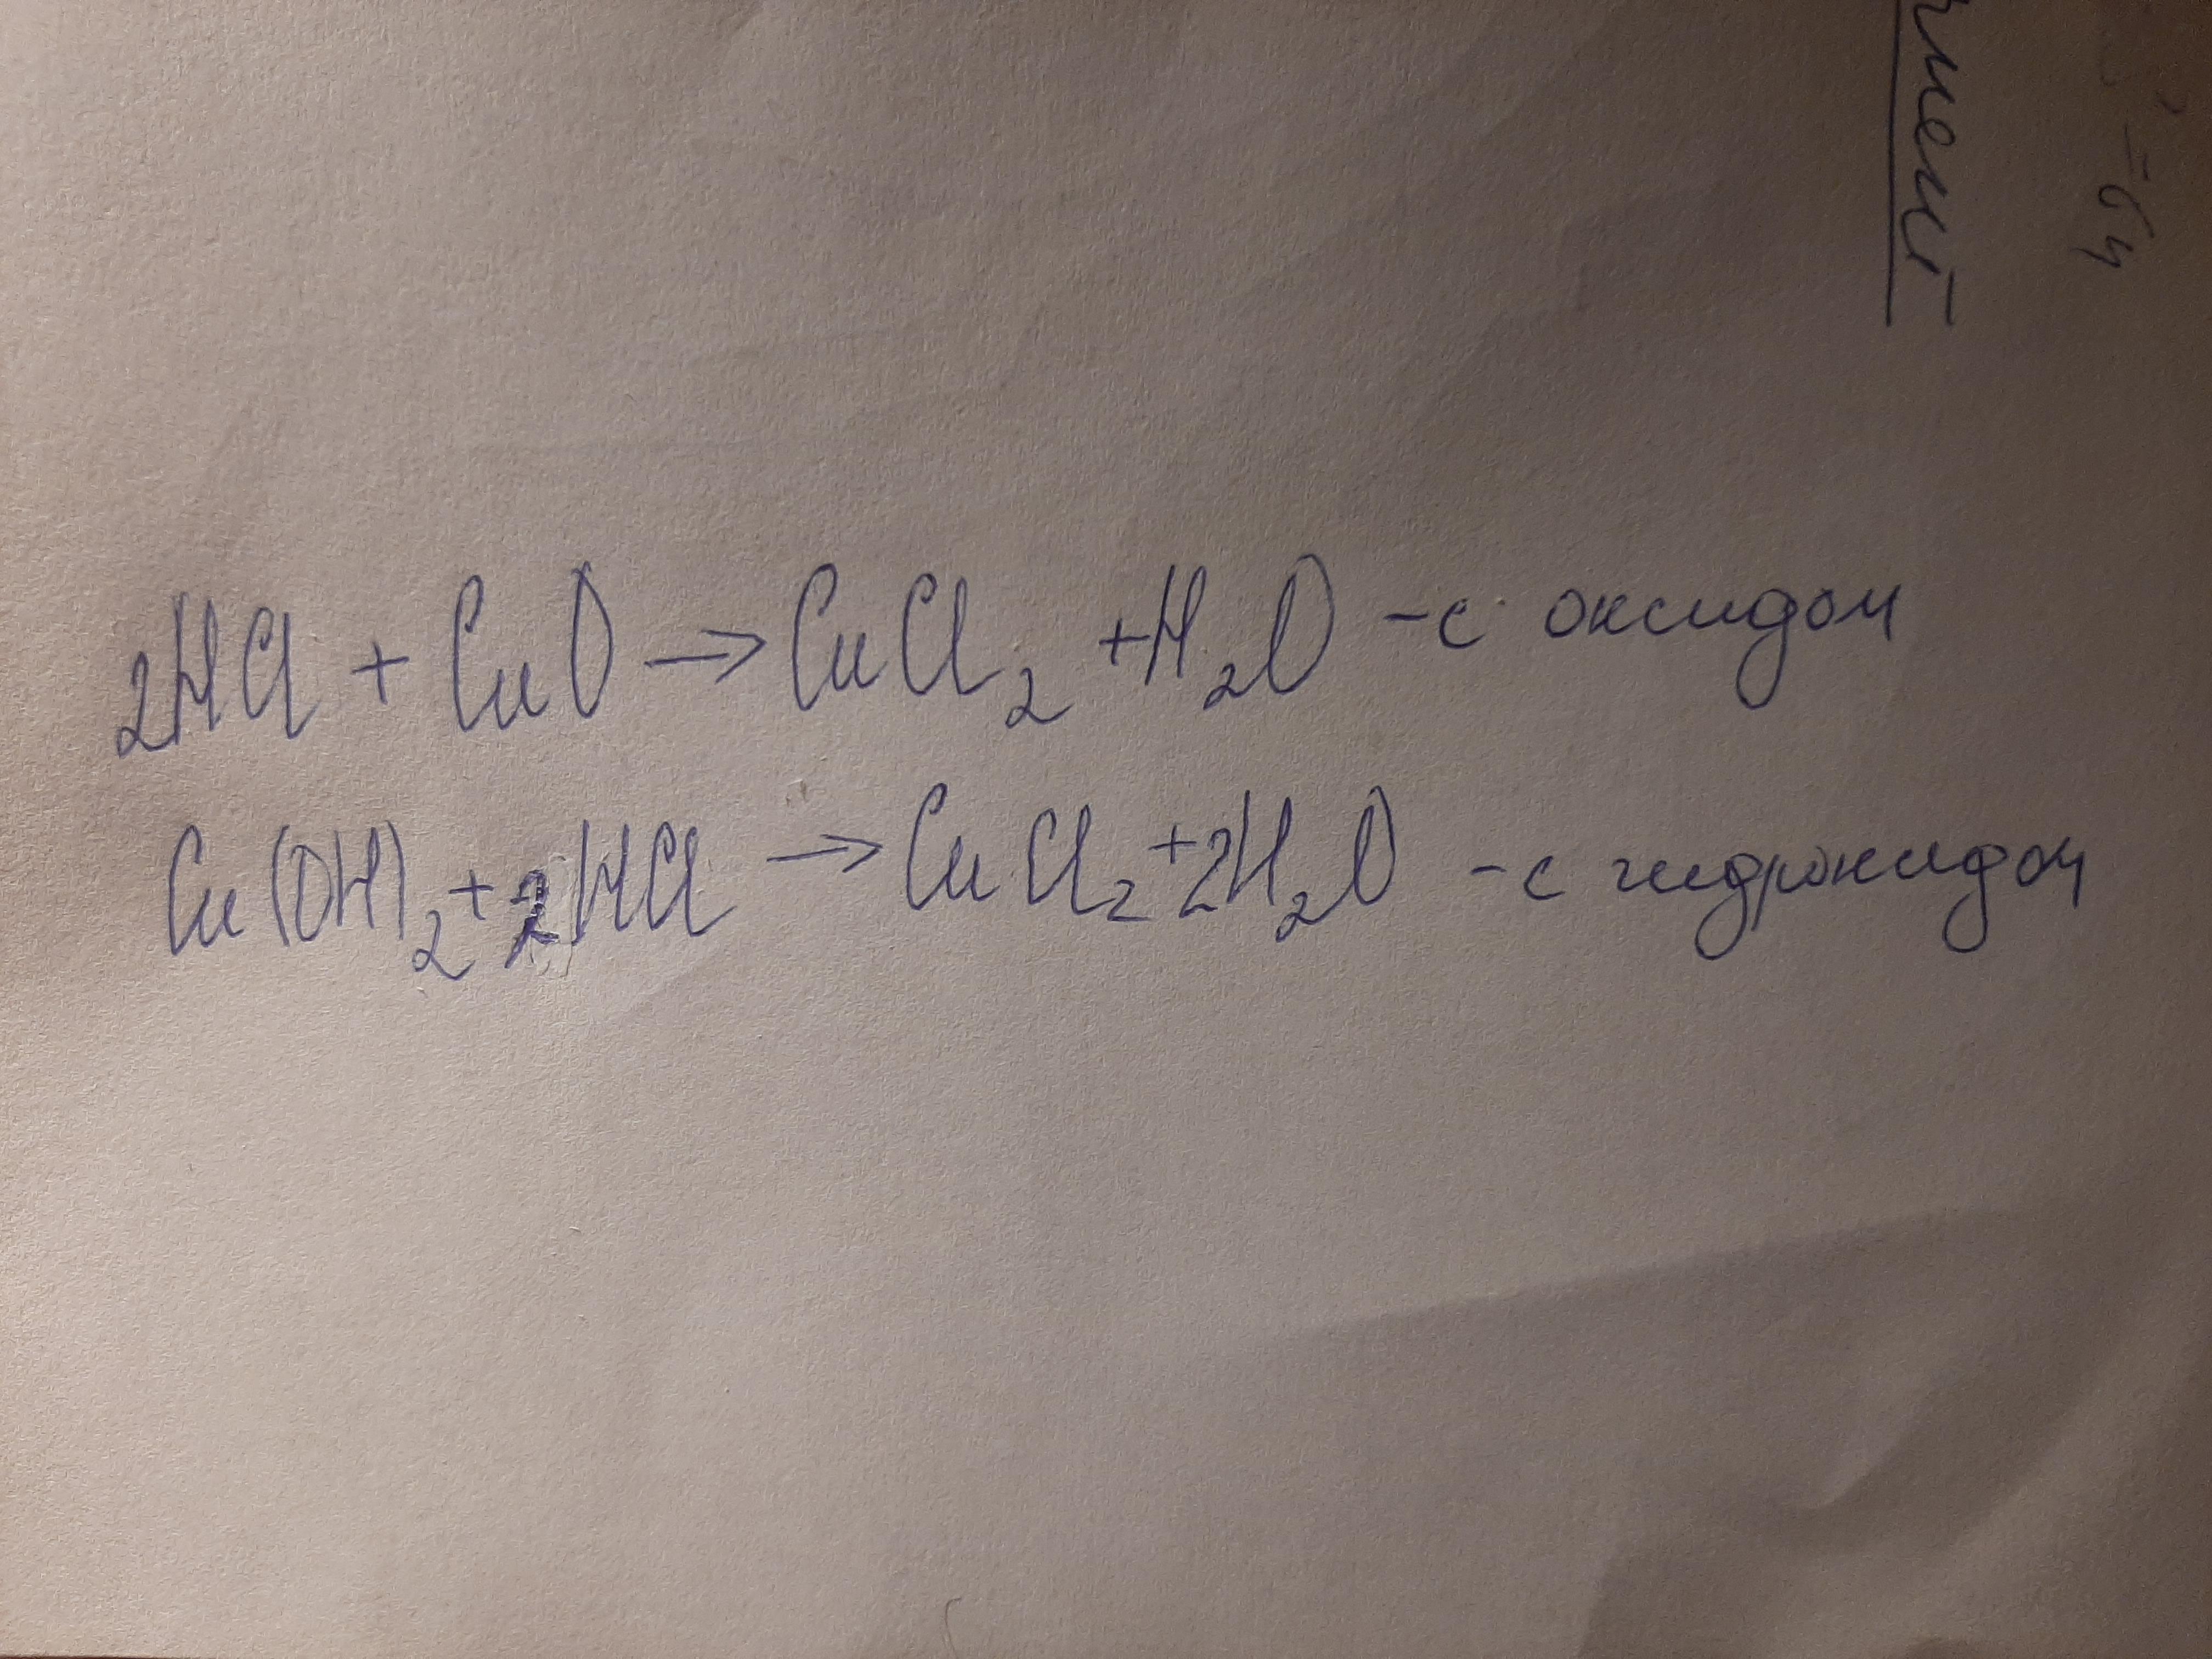 2HCl + CuO → CuCl₂ + H₂O - с оксидом
Cu(OH)₂ + 2HCl → CuCl₂ + 2H₂O - с гидрокидом
=64